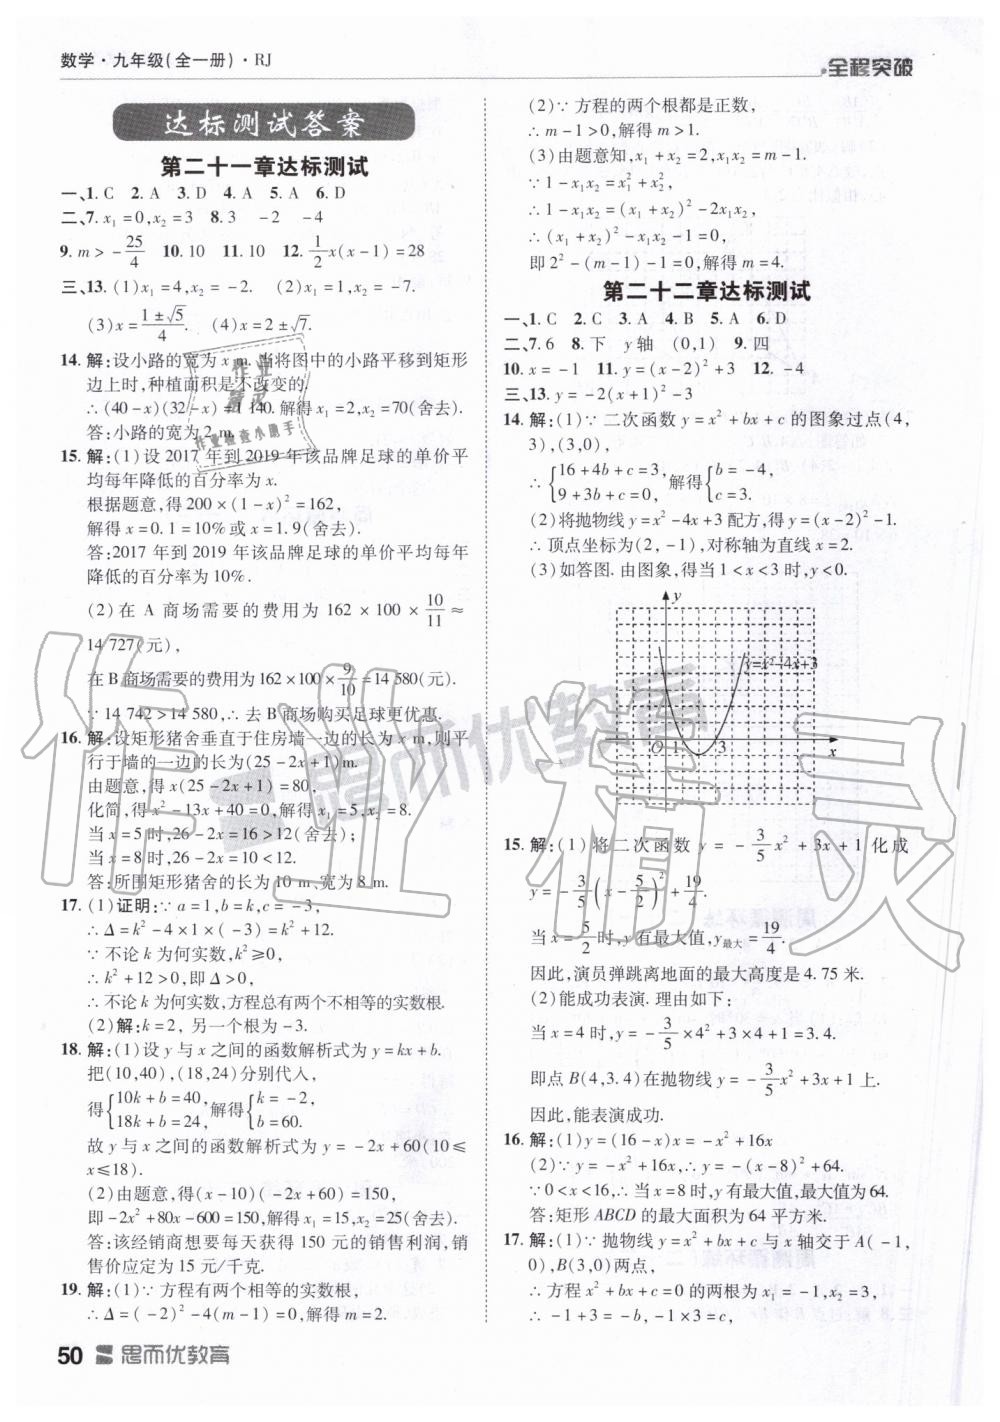 数学·九年级(全一册)·RJ
全程突破
达标测试答案
第二十一章达标测试
一、1. C 2. A 3. D 4. A 5. A 6. D
二、7. x₁=0,x₂=3 8. 3 -2 -4
9. m>-25/4 10. 10 11. 10 12. 1/2x(x-1)=28
三、13. (1)x₁=4,x₂=-2. (2)x₁=1,x₂=-7.
(3)x=(1±√5)/4. (4)x=2±√7.
14. 解:设小路的宽为x m. 当将图中的小路平移到矩形
边上时,种植面积是不改变的.
∴(40-x)(32-x)=1 140. 解得x₁=2,x₂=70(舍去).
答:小路的宽为2 m.
15. 解:(1)设 2017 年到 2019 年该品牌足球的单价平
均每年降低的百分率为x.
根据题意,得200×(1-x)²=162,
解得x=0.1=10%或x=1.9(舍去).
答:2017 年到 2019 年该品牌足球的单价平均每年
降低的百分率为10%.
(2)在 A 商场需要的费用为 162×100×10/11≈
14 727(元),
在B商场需要的费用为162×100×9/10=14 580(元).
∵14 742>14 580,∴去B商场购买足球更优惠.
16. 解:设矩形猪舍垂直于住房墙一边的长为x m,则平
行于墙的一边的长为(25-2x+1)m.
由题意,得x(25-2x+1)=80,
化简,得x²-13x+40=0,解得x₁=5,x₂=8.
当x=5时,26-2x=16>12(舍去);
当x=8时,26-2x=10<12.
答:所围矩形猪舍的长为10 m、宽为8 m.
17. (1)证明:∵a=1,b=k,c=-3,
∴Δ=k²-4×1×(-3)=k²+12.
∵不论k为何实数,k²≥0,
∴k²+12>0,即Δ>0,
∴不论k为何实数,方程总有两个不相等的实数根.
(2)解:k=2, 另一个根为-3.
18. 解:(1)设y与x之间的函数解析式为y=kx+b.
把(10,40),(18,24)分别代入,
得{10k+b=40, 18k+b=24, 解得{k=-2, b=60.
故y与x之间的函数解析式为y=-2x+60(10≤
x≤18).
(2)由题意,得(x-10)(-2x+60)=150,
即-2x²+80x-600=150,解得x₁=15,x₂=25(舍去).
答:该经销商想要每天获得 150 元的销售利润,销
售价应定为 15 元/千克.
19. 解:(1)∵方程有两个相等的实数根,
∴Δ=(-2)²-4(m-1)=0,解得m=2.
(2)∵方程的两个根都是正数,
∴m-1>0,解得m>1.
(3)由题意知,x₁+x₂=2,x₁x₂=m-1.
∵1-x₁x₂=x₁²+x₂²,
∴1-x₁x₂=(x₁+x₂)²-2x₁x₂,
∴(x₁+x₂)²-x₁x₂-1=0,
即2²-(m-1)-1=0,解得m=4.
第二十二章达标测试
一、1. C 2. C 3. A 4. B 5. A 6. D
二、7. 6 8. 下 y轴 (0,1) 9. 四
10. x=-1 11. y=(x-2)²+3 12. -4
三、13. y=-2(x+1)²-3
14. 解:(1)∵二次函数y=x²+bx+c的图象过点(4,
3),(3,0),
∴{16+4b+c=3, 9+3b+c=0, 解得{b=-4, c=3.
(2)将抛物线y=x²-4x+3配方,得y=(x-2)²-1.
∴顶点坐标为(2,-1),对称轴为直线x=2.
(3)如答图. 由图象,得当1<x<3时,y<0.
y
y=x²-4x+3
O 1 3 x
15. 解:(1)将二次函数 y=-3/5x²+3x+1 化成
y=-3/5(x-5/2)²+19/4.
当x=5/2时,y有最大值,y最大=19/4.
因此,演员弹跳离地面的最大高度是4.75米.
(2)能成功表演. 理由如下:
当x=4时,y=-3/5×4²+3×4+1=3.4.
即点B(4,3.4)在抛物线y=-3/5x²+3x+1上.
因此,能表演成功.
16. 解:(1)y=(16-x)x=-x²+16x
(2)∵y=-x²+16x,∴y=-(x-8)²+64.
∵0<x<16,∴当x=8时,y有最大值,最大值为64.
答:矩形ABCD的最大面积为64平方米.
17. 解:(1)∵抛物线y=-x²+bx+c与x轴交于A(-1,
0),B(3,0)两点,
∴方程x²+bx+c=0的两根为x₁=-1,x₂=3,
∴-1+3=-b,-1×3=c,
50 思而优教育
思而优教育
作业精灵
作业精灵
作业检查小助手